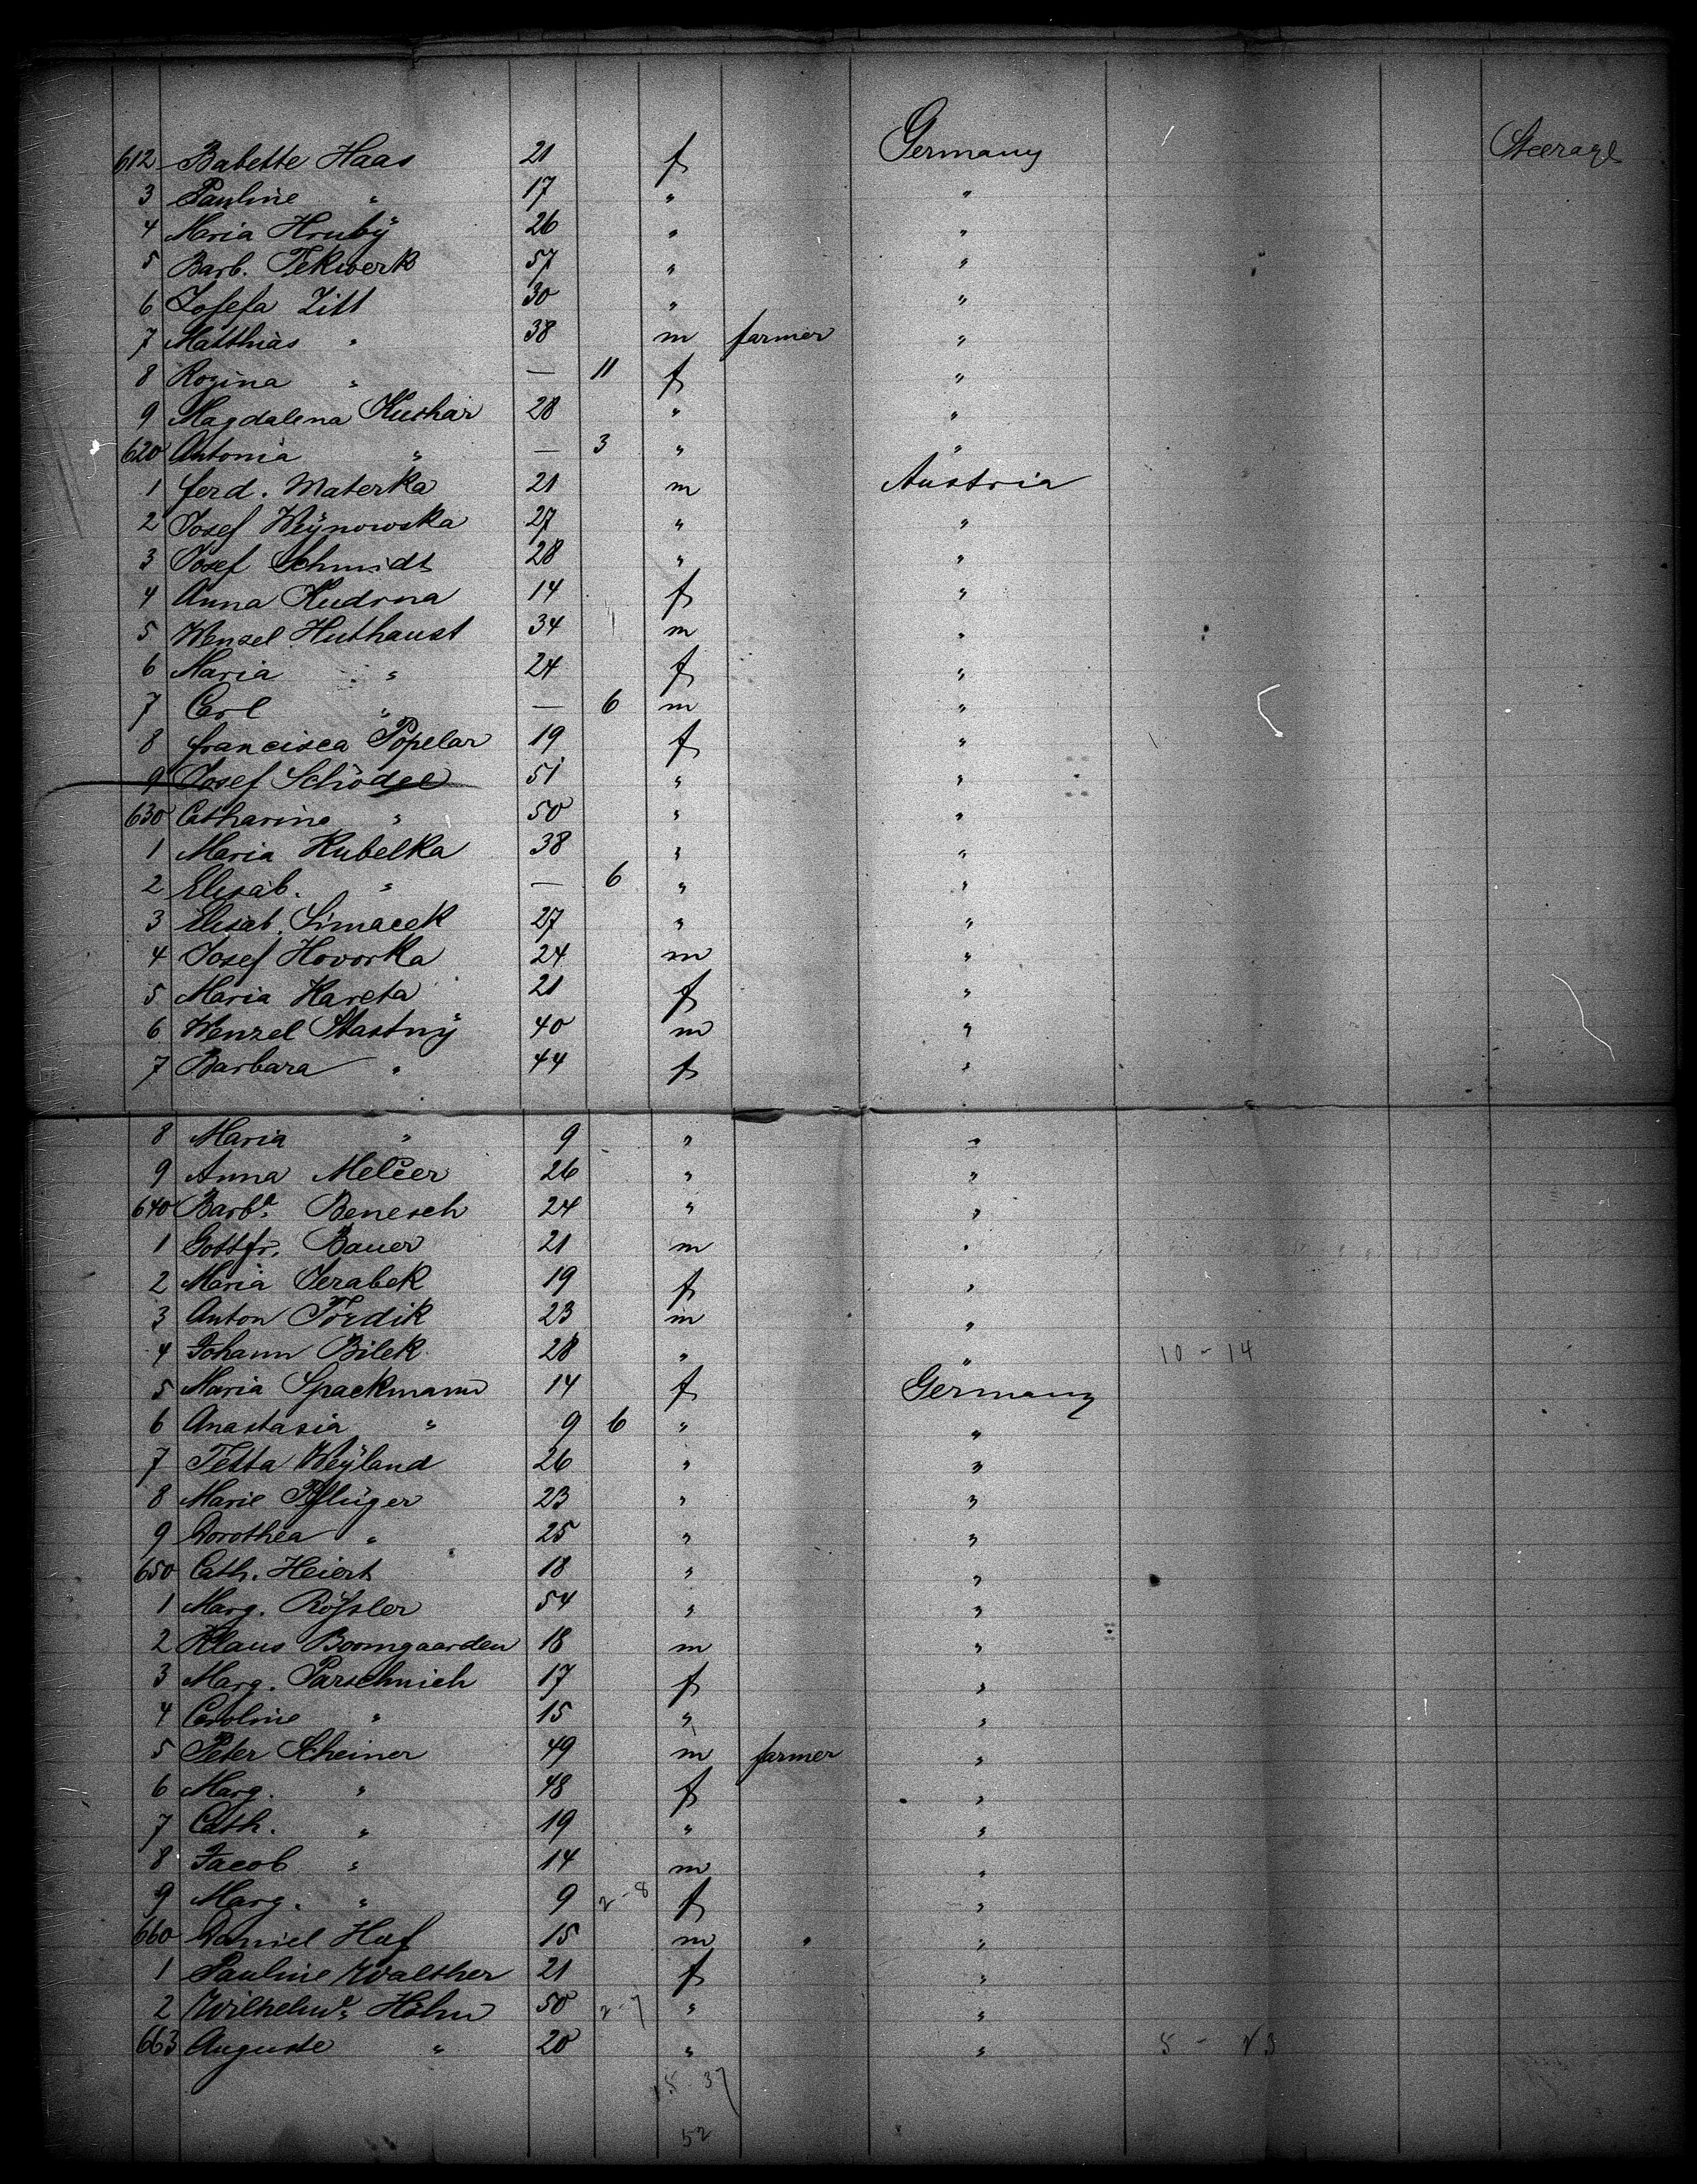 612 Babette Haas 21 f Germany Steerage
3 Pauline " 17 " "
4 Maria Hrubÿ 26 " "
5 Barb. Tekwerk 57 " "
6 Josefa Zitt 30 " "
7 Matthias " 38 m farmer "
8 Rozina " — 11 f "
9 Magdalena Kuchar 28 " "
620 Antonia " — 3 " "
1 ferd. Materka 21 m Austria
2 Josef Weÿnowska 27 " "
3 Josef Schmidt 28 " "
4 Anna Kudrna 14 f "
5 Wenzel Huthaust 34 m "
6 Maria " 24 f "
7 Carl " — 6 m "
8 francisca Popelar 19 f "
9 Josef Schödel 51 " "
630 Catharina " 50 " "
1 Maria Kubelka 38 " "
2 Elisab. " — 6 " "
3 Elisab. Simacek 27 " "
4 Josef Hovorka 24 m "
5 Maria Kareta 21 f "
6 Wenzel Stastnÿ 40 m "
7 Barbara " 44 f "
8 Maria " 9 " "
9 Anna Melcer 26 " "
640 Barba. Benesch 24 " "
1 Gottfr. Bauer 21 m "
2 Maria Jerabek 19 f "
3 Anton Tordik 23 m "
4 Johann Bilek 28 " " 10 - 14
5 Maria Spackmann 14 f Germany
6 Anastasia " 9 6 " "
7 Tetta Weÿland 26 " "
8 Marie Pflüger 23 " "
9 Dorothea " 25 " "
650 Cath. Heiert 18 " "
1 Marg. Rößler 54 " "
2 Klaus Boomgaarden 18 m "
3 Marg. Parschnich 17 f "
4 Caroline " 15 " "
5 Peter Scheiner 49 m farmer "
6 Marg. " 48 f "
7 Cath. " 19 " "
8 Jacob " 14 m "
9 Marg. " 9 2-8 f "
660 Daniel Huf 15 m "
1 Pauline Walther 21 f "
2 Wilhelme. Hahn 50 2-7 " "
663 Auguste " 20 " " 5 - 23
15-37
52